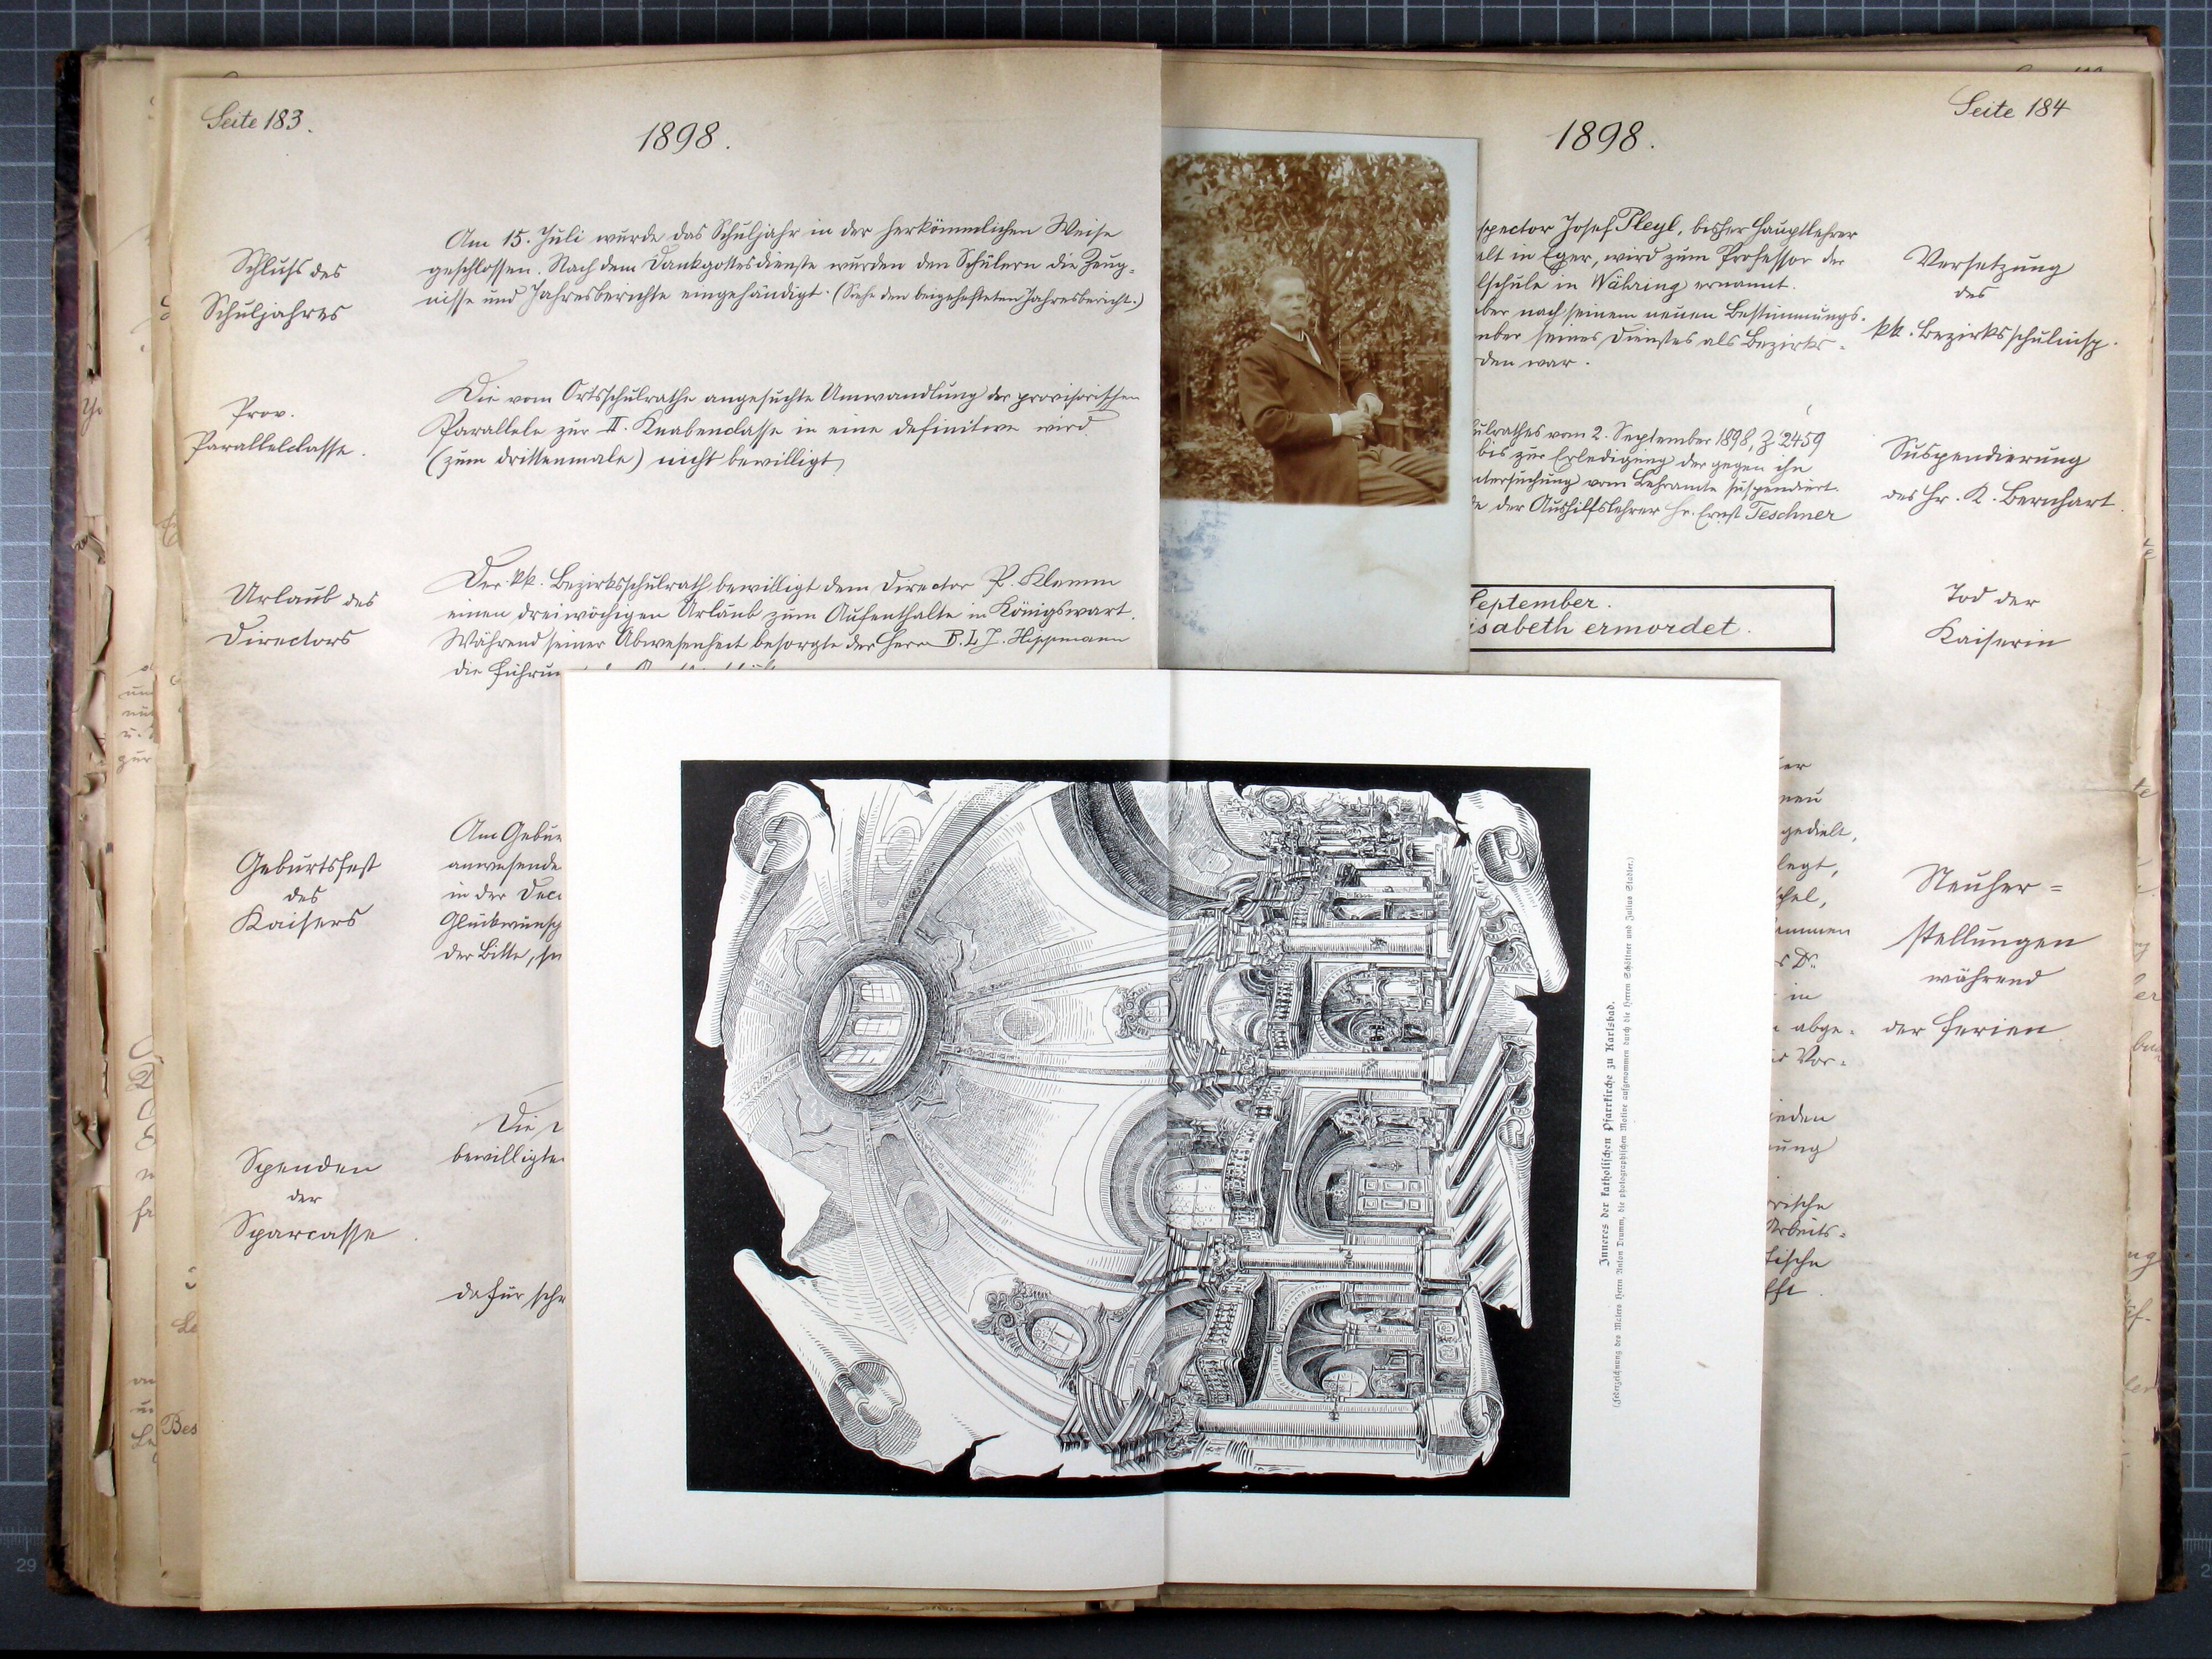 Seite 183.
1898.
Schluss des
Schuljahres
Am 15. Juli wurde das Schuljahr in der herkömmlichen Weise
geschlossen. Nach dem Dankgottesdienste wurden den Schülern die Zeug-
nisse und Jahresberichte eingehändigt. (Siehe den beigehefteten Jahresbericht.)
Prov.
Parallelclasse.
Die vom Ortsschulrathe angesuchte Umwandlung der provisorischen
Parallele zur II. Knabenclasse in eine definitive wird
(zum drittenmale) nicht bewilligt
Urlaub des
Directors
Der kk. Bezirksschulrath bewilligt dem Director P. Klemm
einen dreiwöchigen Urlaub zum Aufenthalte in Königswart.
Während seiner Abwesenheit besorgte der Herr B. L. J. Hippmann
die
Geburtsfest
des
Kaisers
Am Gebur
anwesende
in der
Glückwünsch
der Bitte,
Spenden
der
Sparcasse
Die
bewilligte
dafür
Seite 184
1898.
spector Josef Pleyl, bisher Hauptlehrer
alt in Eger, wird zum Professor der
lschule in Währing ernannt.
ber nach seinem neuen Bestimmungs-
mber seines Dienstes als Bezirks-
den war.
Versetzung
des
kk. Bezirksschulinsp.
ulrathes vom 2. September 1898, Z. 2459
bis zur Erledigung der gegen ihn
ntersuchung vom Lehramte suspendiert.
der Aushilfslehrer Hr. Ernst Teschner
Suspendierung
des Hr. K. Bernhart.
September.
isabeth ermordet.
Tod der
Kaiserin
er
neu
gedielt,
legt,
fel,
ommen
Dr.
in
abge-
Vor-
ieden
nung
rische
Arbeits-
tische
fft.
Neuher=
stellungen
während
der Ferien
Inneres der katholischen Pfarrkirche zu Karlsbad.
(Federzeichnung des Malers Herrn Anton Trumm, die photographischen Motive aufgenommen durch die Herren Schöttner und Julius Stadler.)
Bes
29